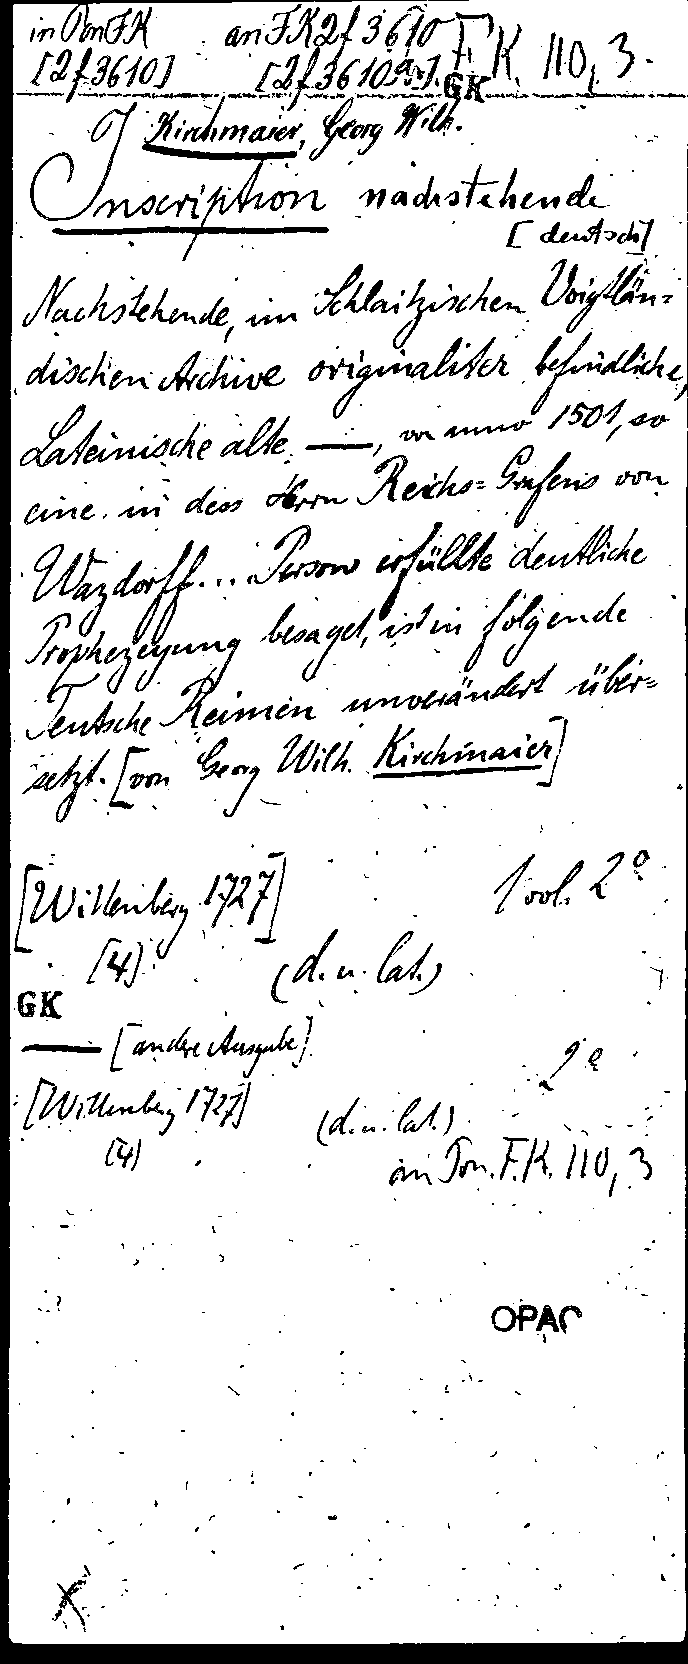 in Pon FK an FK 2f 3610 F.K. 110,3.
[2f 3610] [2f 3610 GK
Kirchmaier, Georg Wilh.
Inscription nachstehende
[deutsch]
Nachstehende, im Schlaitzischen Voigtlän=
dischen Archive originaliter befindliche,
Lateinische alte ——, von anno 1501, so
eine in dess Herrn Reichs=Grafens von
Wazdorff... Person erfüllte deutliche
Prophezeyung besaget, ist in folgende
Teutsche Reimen unverändert über=
setzt. [von Georg Wilh. Kirchmaier]
[Wittenberg 1727] 1 vol. 2°
[4] (d. u. lat.)
GK
—— [andere Ausgabe] 2°
[Wittenberg 1727] (d. u. lat.)
[4] an Pon. F.K. 110,3
OPAC